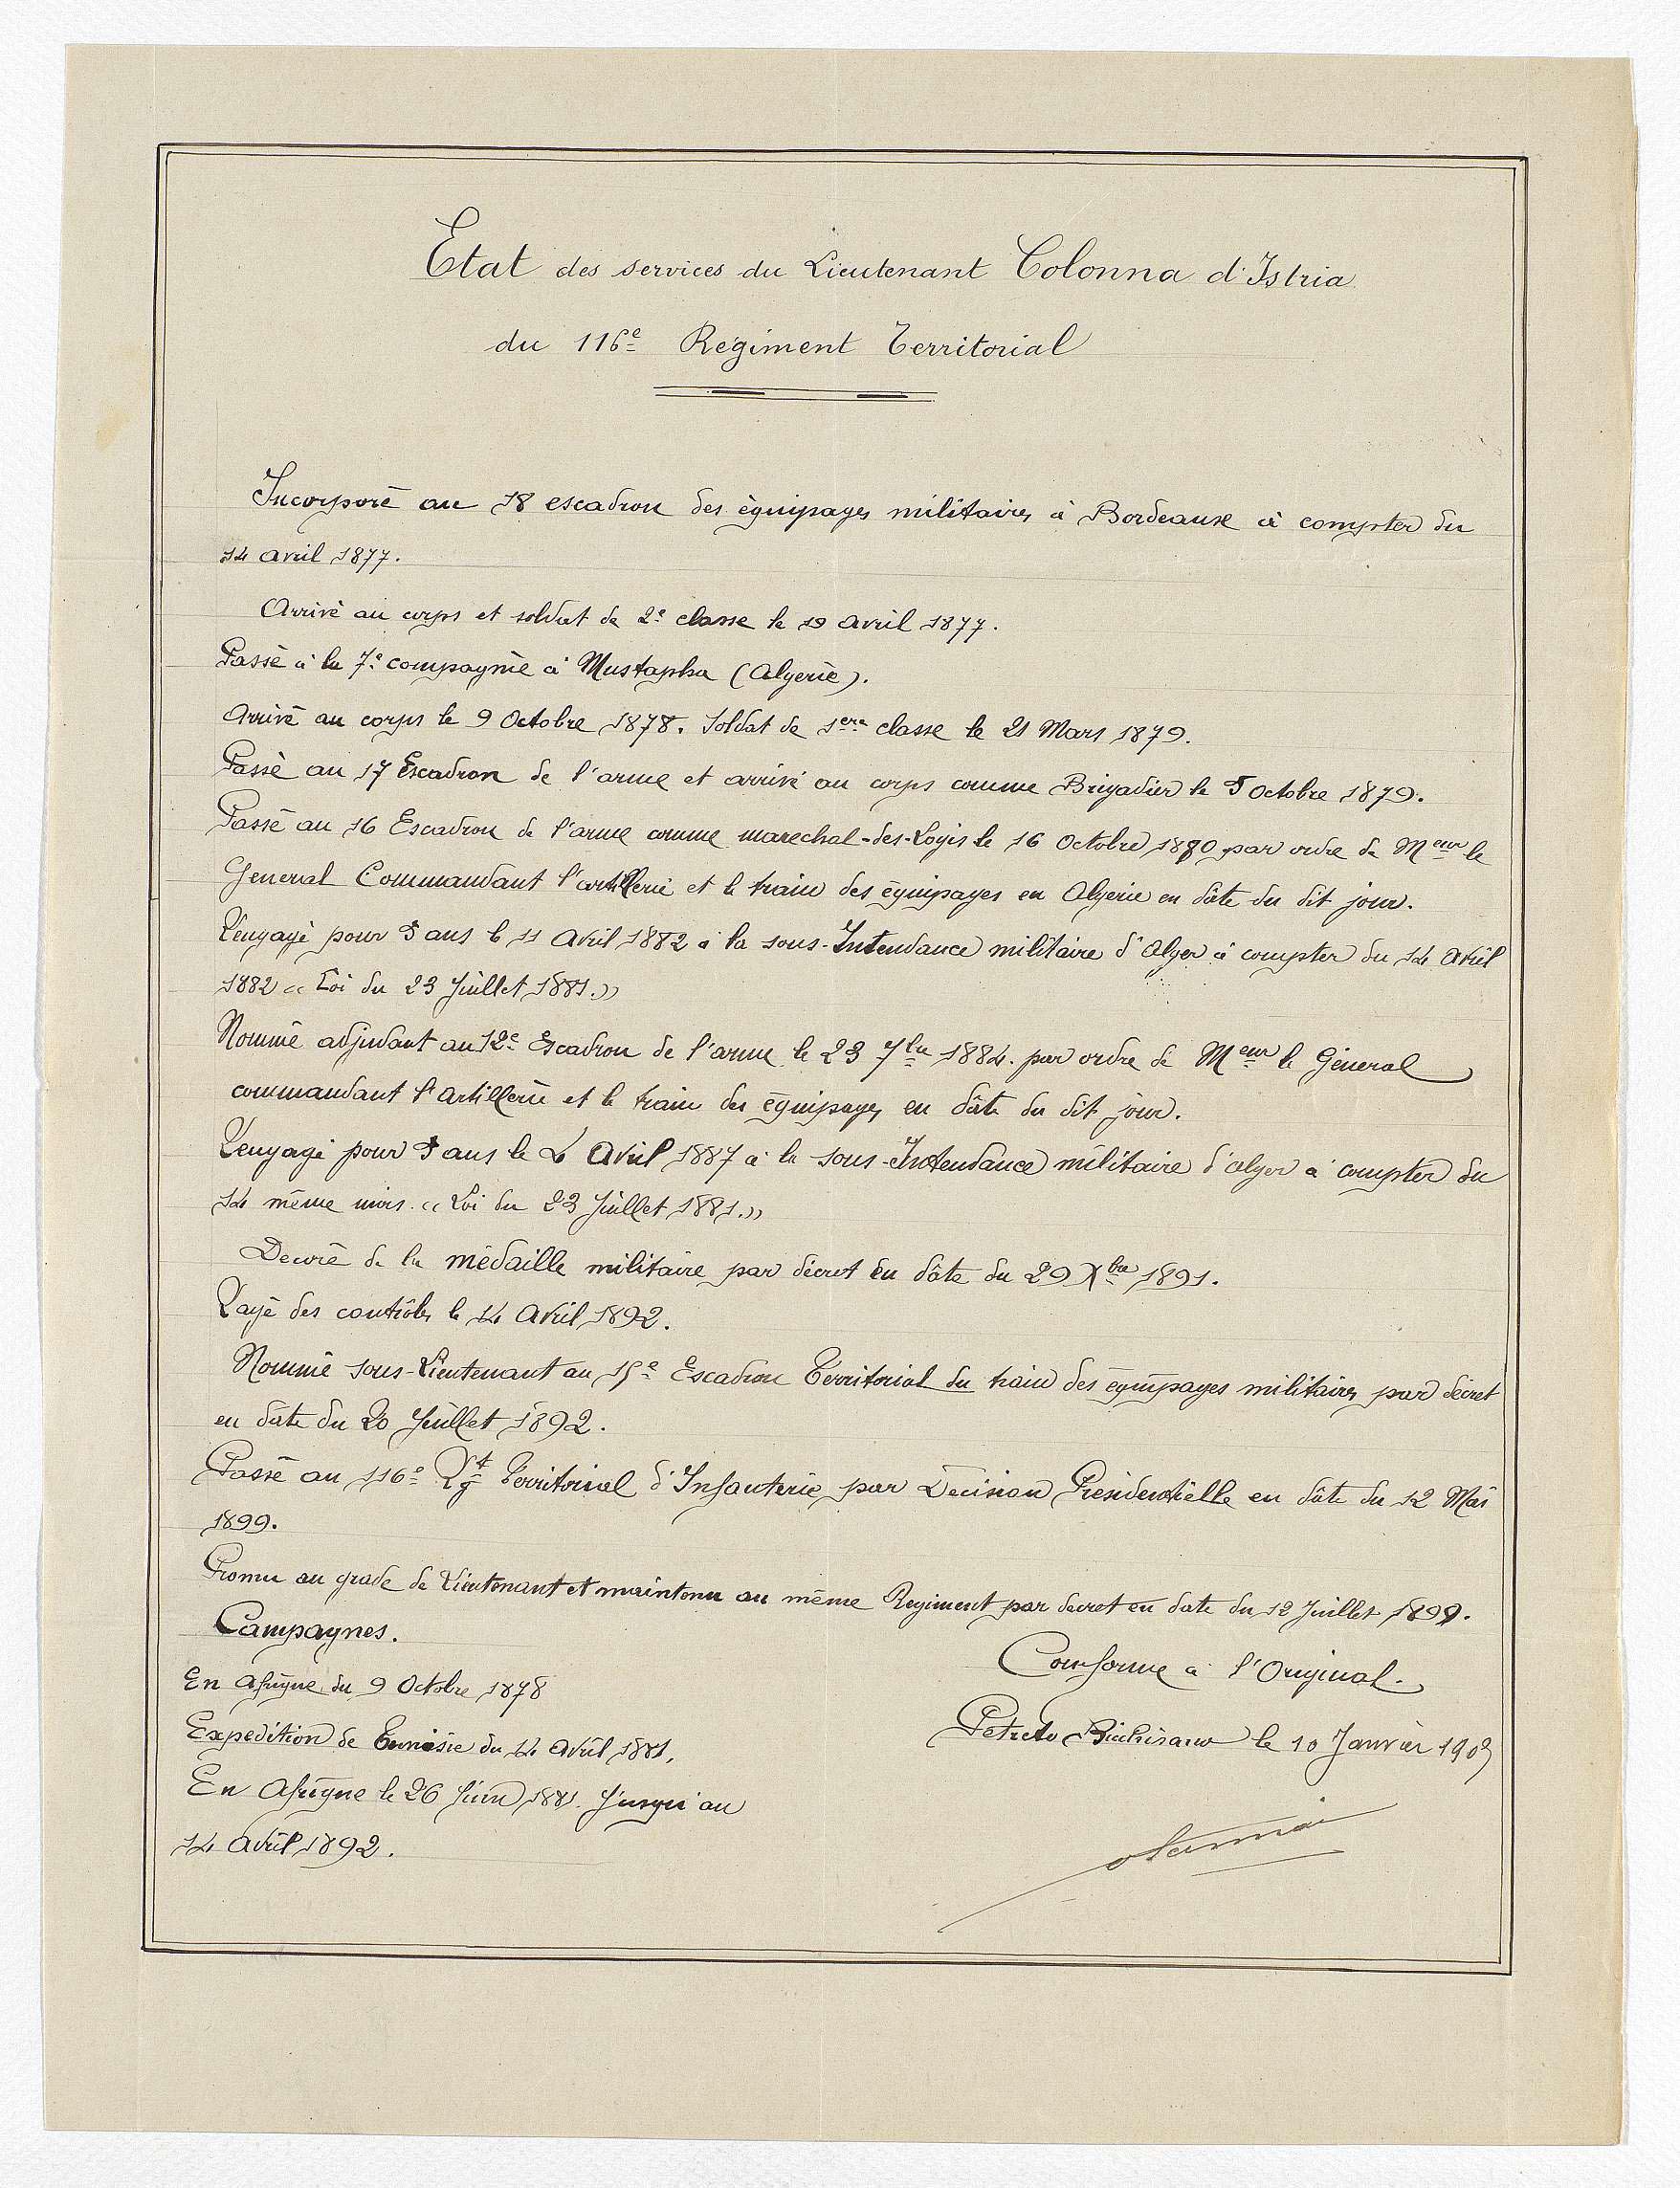 Etat des services du Lieutenant Colonna d'Istria
du 116e Régiment Territorial
Incorporé au 18 escadron des équipages militaires à Bordeaux à compter du
14 avril 1877.
Arrivé au corps et soldat de 2e classe le 19 avril 1877.
Passé à la 7e compagnie à Mustapha (Algérie).
Arrivé au corps le 9 Octobre 1878. Soldat de 1ere classe le 21 Mars 1879.
Passé au 17 Escadron de l'arme et arrivé au corps comme Brigadier le 5 Octobre 1879.
Passé au 16 Escadron de l'arme comme marechal-des-Logis le 16 Octobre 1880 par ordre de Meur le
General Commandant l'artillerie et le train des équipages en Algerie en dâte du dit jour.
Rengagé pour 5 ans le 11 Avril 1882 à la sous-Intendance militaire d'Alger à compter du 14 Avril
1882 « Loi du 23 Juillet 1881. »
Nommé adjudant au 12e Escadron de l'arme le 23 7bre 1884. par ordre de Meur le Géneral
commandant l'artillerie et le train des équipages en dâte du dit jour.
Rengagé pour 5 ans le 2 Avril 1887 à la sous-Intendance militaire d'alger à compter du
14 même mois. « Loi du 23 Juillet 1881. »
Decoré de la médaille militaire par décret en dâte du 29 Xbre 1891.
Rayé des contrôles le 14 Avril 1892.
Nommé sous-Lieutenant au 15e Escadron Territorial du train des équipages militaires par décret
en dâte du 20 Juillet 1892.
Passé au 116e Rgt Territorial d'Infanterie par Décision Présidentielle en dâte du 12 Mai
1899.
Promu au grade de Lieutenant et maintenu au même Regiment par decret en date du 12 Juillet 1899.
Campagnes.
En Afrique du 9 Octobre 1878
Expedition de Tunisie du 14 Avril 1881,
En Afrique le 26 Juin 1881. Jusqu'au
14 Avril 1892.
Conforme à l'Original.
Petreto Bicchisano le 10 Janvier 1903